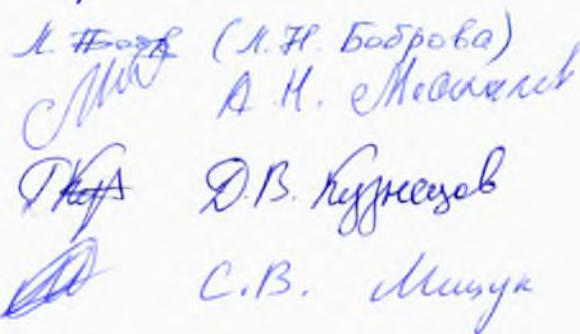 (Л. Н. Боброва)
А. Н. Москалев
Д. В. Кузнецов
С. В. Мищук